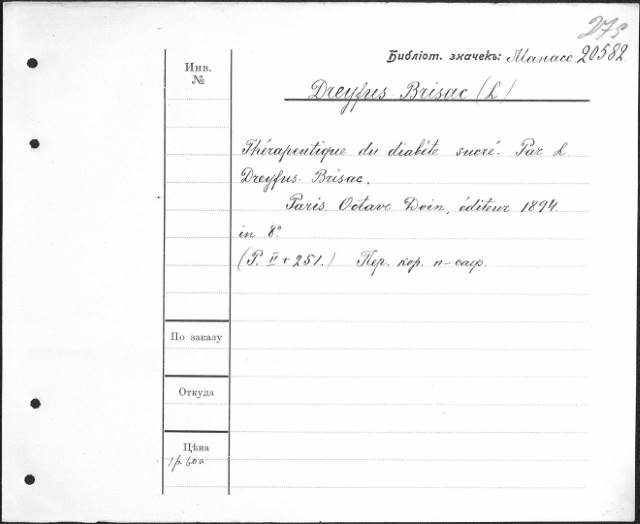 275
Библіот. значекъ: Манасс. 20582
Инв.
№
Dreyfus-Brisac (L)
Thérapeutique du diabéte sucré. Par L.
Dreyfus-Brisac.
Paris. Octave Doin, éditeur 1894.
in 8°.
(P. II + 251.) Пер. кор. п-саф.
По заказу
Откуда
Цѣна
1 р 60 к